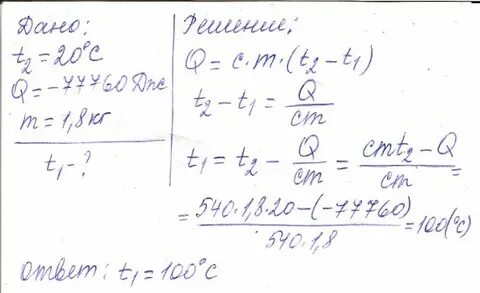 Дано:
t₂=20°C
Q=-77760 Дж
m=1,8кг
t₁-?
Решение:
Q=c·m·(t₂-t₁)
t₂-t₁=Q/cm
t₁=t₂-Q/cm=cmt₂-Q/cm=
=540·1,8·20-(-77760)/540·1,8=100(°C)
Ответ: t₁=100°C